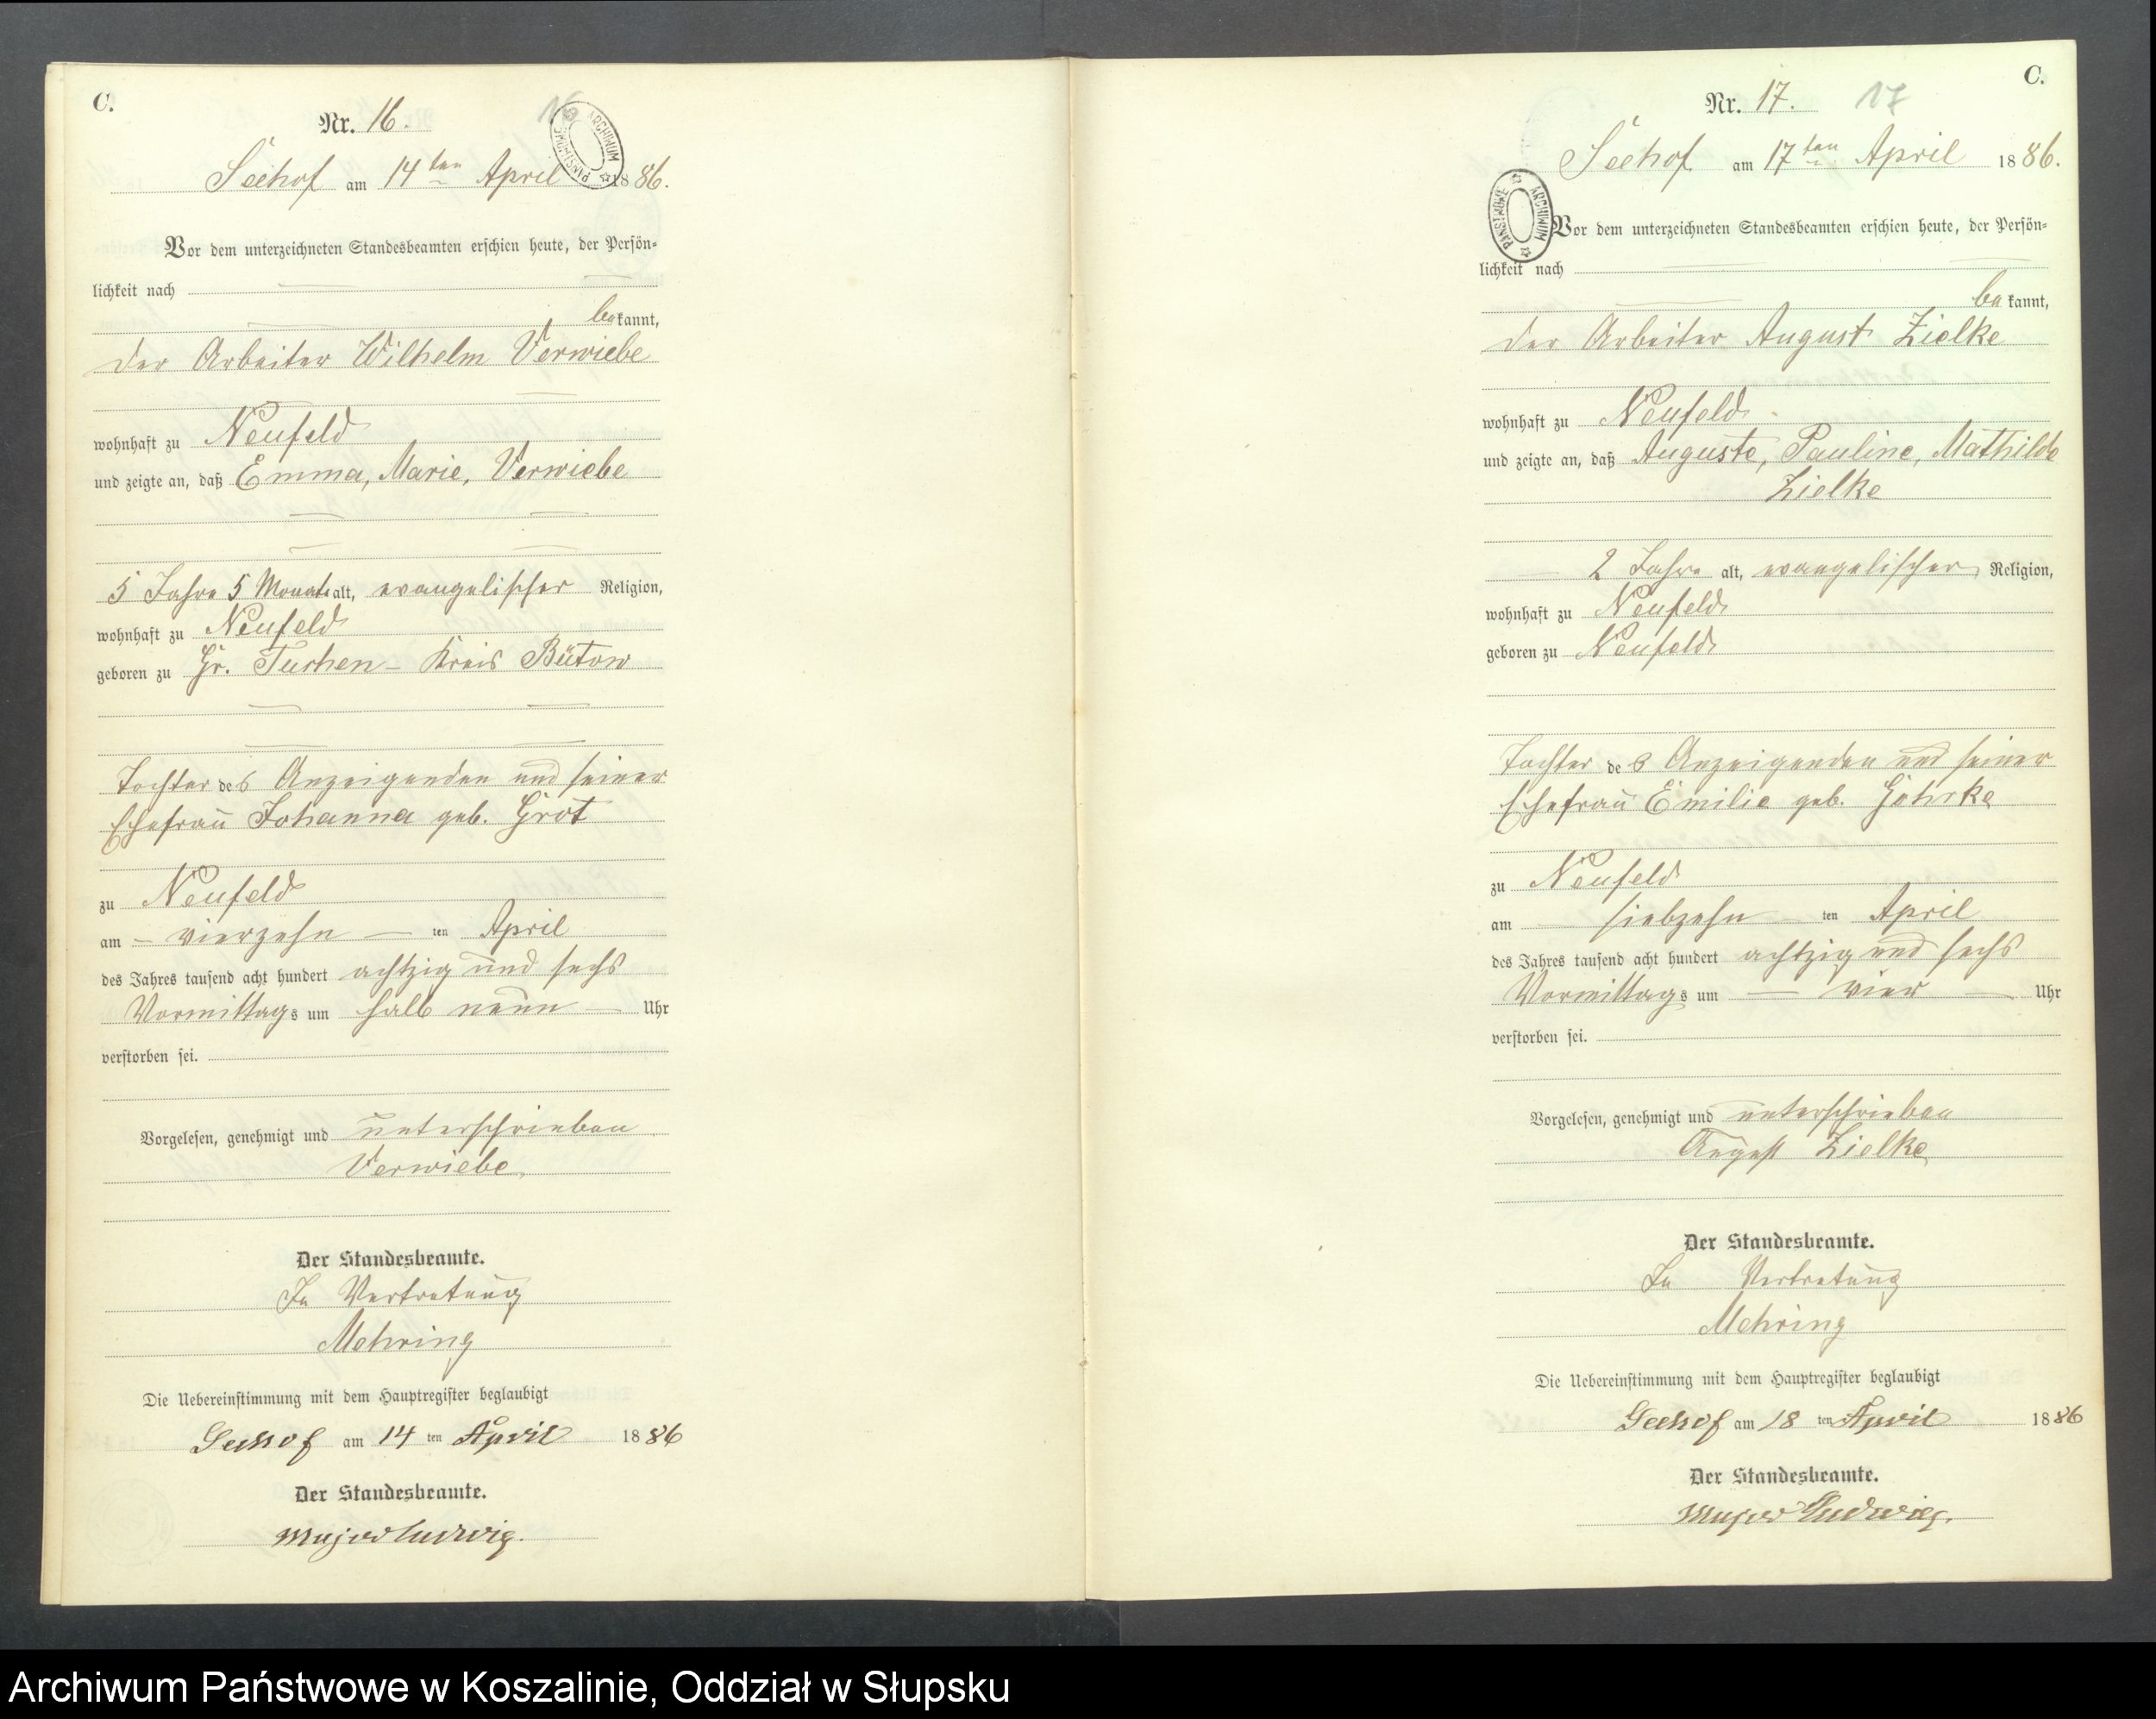 C.
Nr. 16.
16
ARCHIWUM PAŃSTWOWE
Seehof am 14ten April 1886.
Vor dem unterzeichneten Standesbeamten erschien heute, der Persön-
lichkeit nach
bekannt,
der Arbeiter Wilhelm Verwiebe
wohnhaft zu Neufeld
und zeigte an, daß Emma, Marie, Verwiebe
5 Jahre 5 Monate alt, evangelischer Religion,
wohnhaft zu Neufeld
geboren zu Gr. Tuchen - Kreis Bütow
Tochter des Anzeigenden und seiner
Ehefrau Johanna geb. Grot
zu Neufeld
am - vierzehn - ten April
des Jahres tausend acht hundert achtzig und sechs
Vormittags um halb neun - Uhr
verstorben sei.
Vorgelesen, genehmigt und unterschrieben
Verwiebe
Der Standesbeamte.
In Vertretung
Mehring
Die Uebereinstimmung mit dem Hauptregister beglaubigt
Seehof am 14 ten April 1886
Der Standesbeamte.
Major Ludwig.
C.
Nr. 17.
17
Seehof am 17ten April 1886.
ARCHIWUM PAŃSTWOWE
Vor dem unterzeichneten Standesbeamten erschien heute, der Persön-
lichkeit nach
bekannt,
der Arbeiter August Zielke
wohnhaft zu Neufeld
und zeigte an, daß Auguste, Pauline, Mathilde
Zielke
2 Jahre alt, evangelischer Religion,
wohnhaft zu Neufeld
geboren zu Neufeld
Tochter des Anzeigenden und seiner
Ehefrau Emilie geb. Göhrke
zu Neufeld
am - siebzehn - ten April
des Jahres tausend acht hundert achtzig und sechs
Vormittags um - vier - Uhr
verstorben sei.
Vorgelesen, genehmigt und unterschrieben
August Zielke
Der Standesbeamte.
In Vertretung
Mehring
Die Uebereinstimmung mit dem Hauptregister beglaubigt
Seehof am 18 ten April 1886
Der Standesbeamte.
Major Ludwig.
Archiwum Państwowe w Koszalinie, Oddział w Słupsku